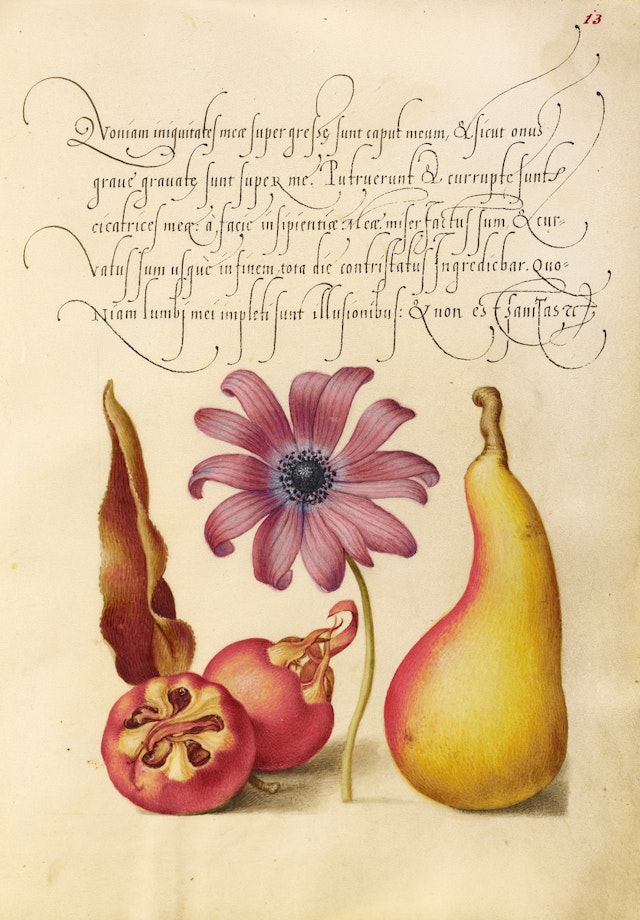 13
Quoniam iniquitates meæ supergresse sunt caput meum, & sicut onus
graue grauate sunt super me. Putruerunt & currupte sunt
cicatrices meæ: à facie insipientiæ meæ. miser factus sum, & cur-
vatus sum usque in finem, tota die contristatus Ingrediebar. Quo-
Niam lumbi mei impleti sunt illusionibus: & non est sanitas